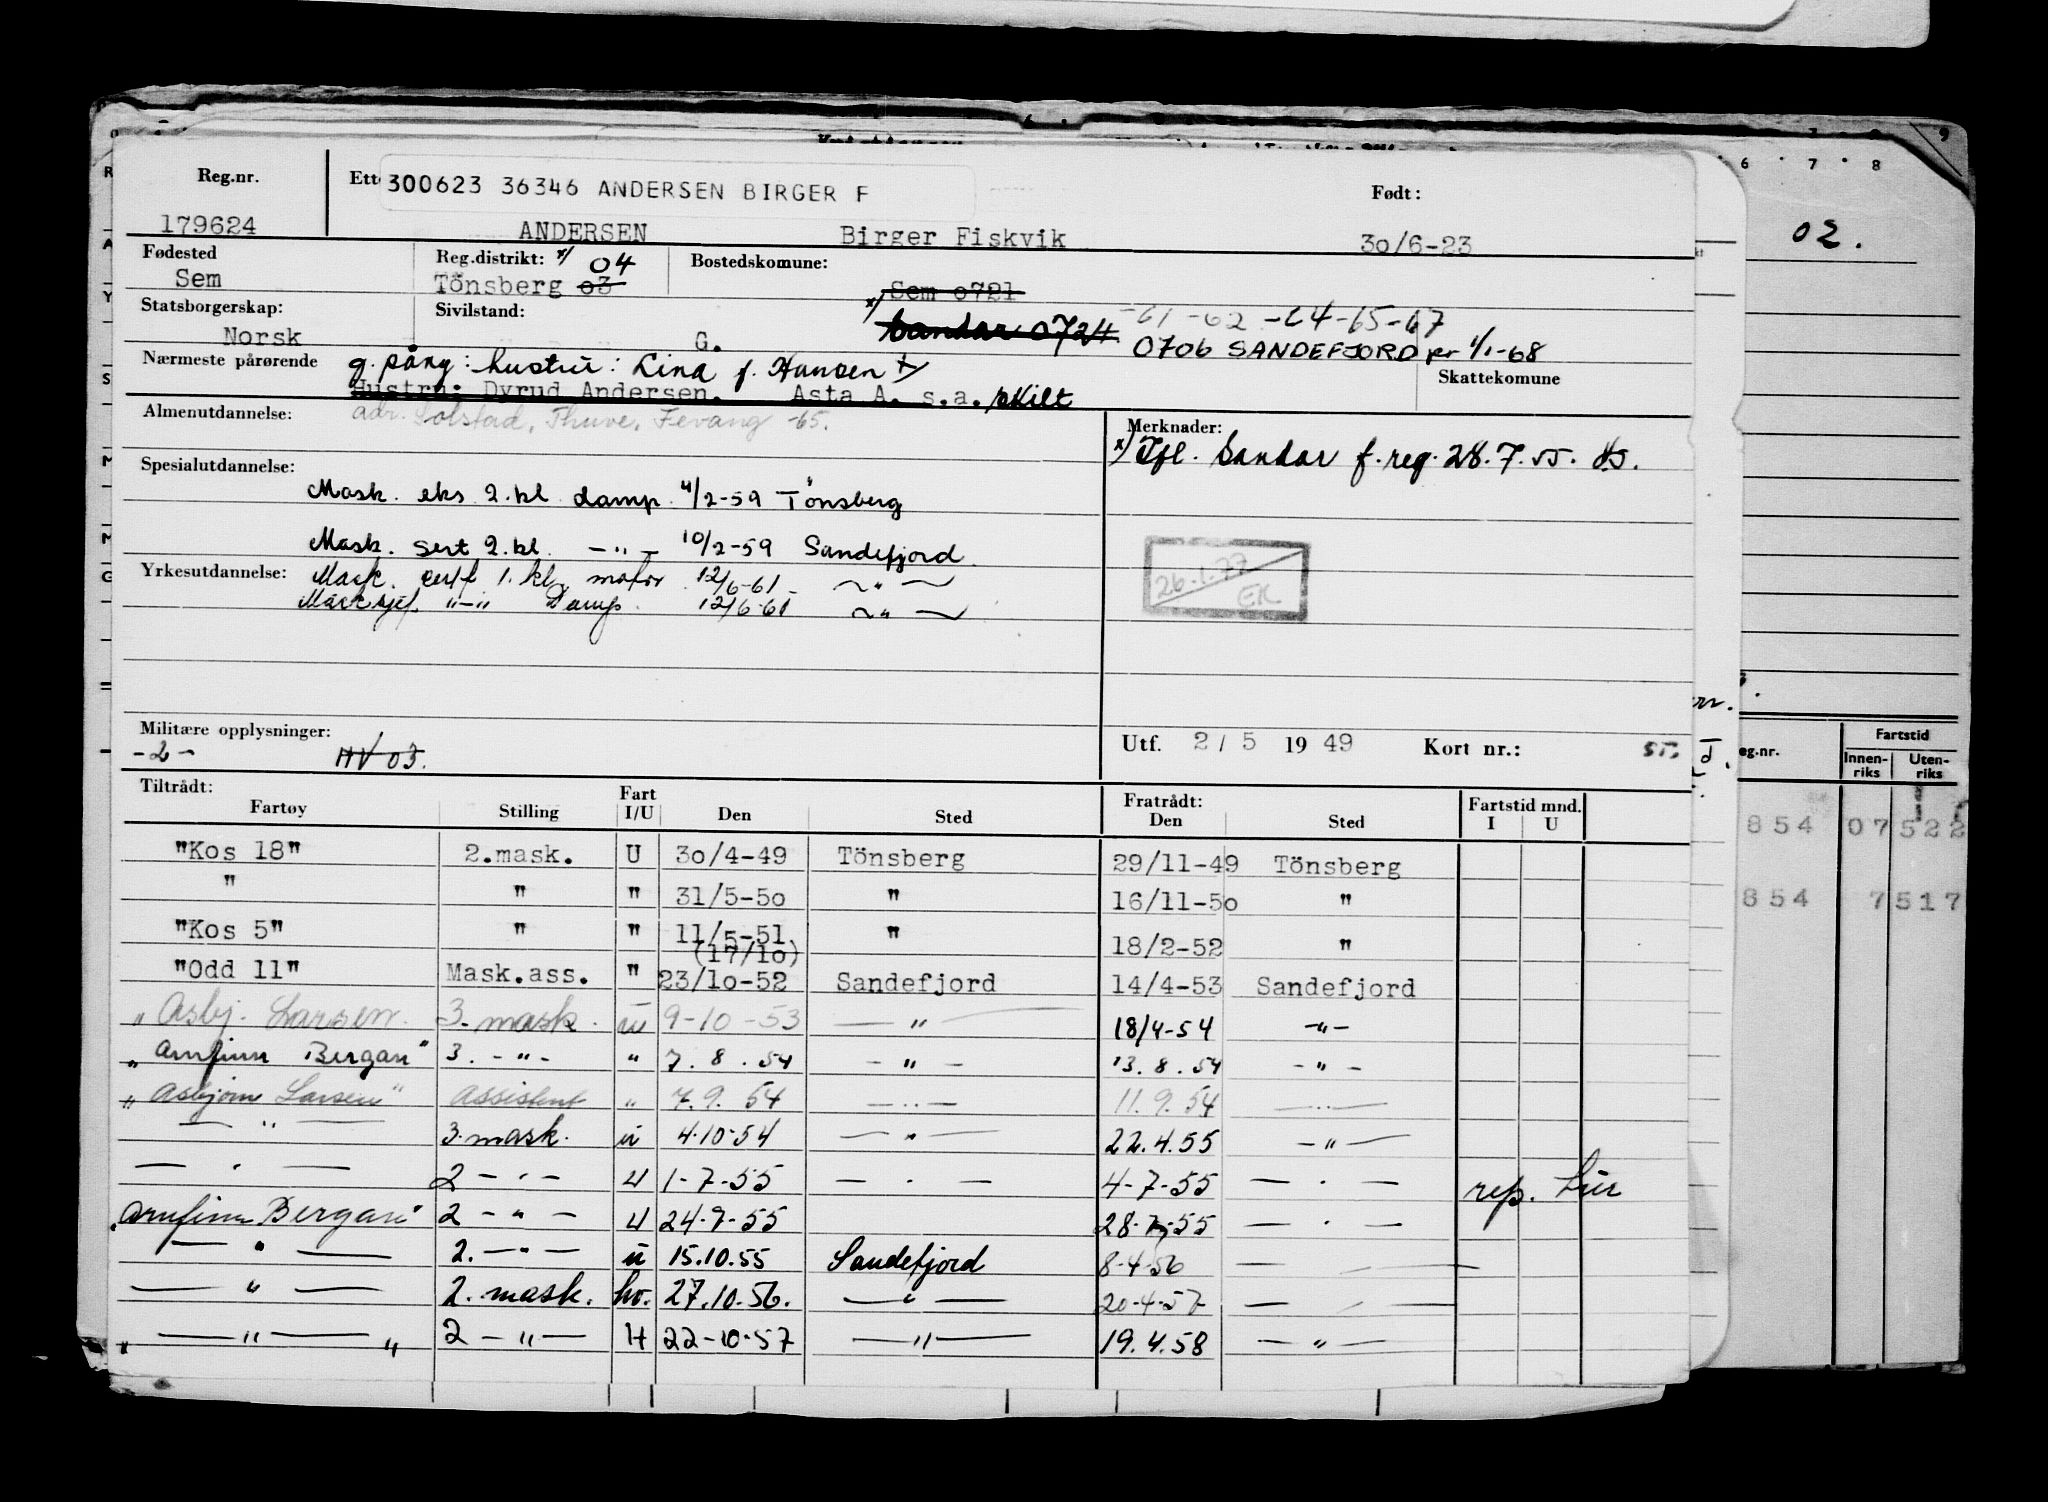 Reg.nr.
300623 36346 ANDERSEN BIRGER F
Født:
179624 ANDERSEN Birger Fiskvik 30/6-23
Fødested Reg.distrikt: x/ 04 Bostedskomune:
Sem Tönsberg 03 Sem 0721
Statsborgerskap: Sivilstand: x/ -61-62-64-65-67
Norsk G. Sandar 0724 0706 SANDEFJORD pr 1/1-68
Nærmeste pårørende g. pång: hustru: Lina f. Hansen x/ Skattekomune
Hustru: Dyrud Andersen. Asta A. s.a. skilt
Almenutdannelse: adr. Solstad, Thuve, Fevang -65. Merknader:
x/ Tfl. Sandar f. reg. 28.7.55.
Spesialutdannelse:
Mask. eks 2. kl damp. 4/2-59 Tönsberg
Mask. sert 2. kl. -"- 10/2-59 Sandefjord.
Yrkesutdannelse: Mask. cert 1. kl. motor 12/6-61 -"-
"-" Damp. 12/6-61 -"-
26.1.77
EK
Militære opplysninger: Utf. 2/5 1949 Kort nr.:
-2- HV 03.
Tiltrådt: Fart Fratrådt: Fartstid mnd.
Fartøy Stilling I/U Den Sted Den Sted I U
"Kos 18" 2.mask. U 30/4-49 Tönsberg 29/11-49 Tönsberg
" " " 31/5-50 " 16/11-50 "
"Kos 5" " " 11/5-51 " 18/2-52 "
(17/10)
"Odd 11" Mask.ass. " 23/10-52 Sandefjord 14/4-53 Sandefjord
" Asbj. Larsen. 3. mask. u 9-10-53 -"- 18/4-54 -"-
" Arnfinn Bergan" 3. -"- " 7.8.54 -"- 13.8.54 -"-
" Asbjørn Larsen" Assistent " 7.9.54 -"- 11.9.54 -"-
-"- 3. mask. u 4.10.54 -"- 22.4.55 -"-
-"- 2 -"- U 1-7-55 -"- 4-7-55 -"- rep.
"Arnfinn Bergan" 2 -"- U 24-9-55 28-9-55 -"-
-"- 2. -"- u 15.10.55 Sandefjord 8-4-56 -"-
-"- 2. mask. hv. 27.10.56. -"- 20-4-57 -"-
" -"- " 2 -"- H 22-10-57 -"- 19.4.58 -"-
6 7 8 9
02.
Fartstid
eg.nr. Innen-riks Uten-riks
854 07 522
854 7 517